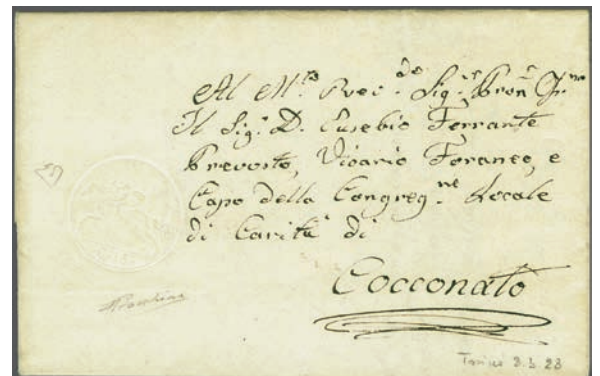 Al M.to Rev.do Sig.r Pron.e
Il Sig.r D. Eusebio Ferrante
Prevosto, Vicario Foraneo, e
Capo della Congreg.ne Locale
di Carità di
Cocconato
Torino 3.3 23